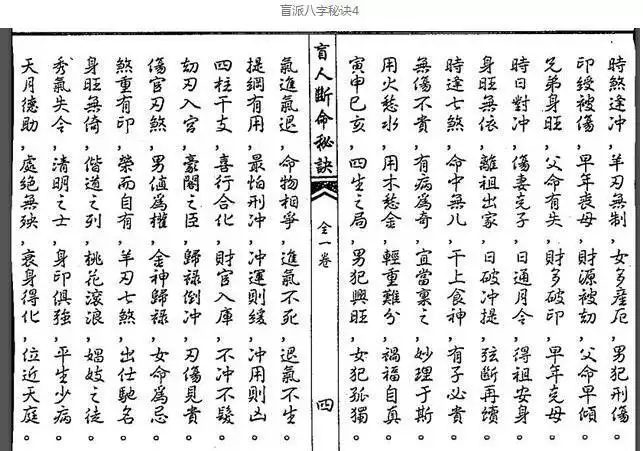 盲派八字秘诀4
時煞逢冲,羊刃無制,女多產厄,男犯刑傷。
印綬被傷,早年喪母,財源被劫,父命早傾。
兄弟身旺,父命有失,財多破印,早年克母。
時日對冲,傷妻克子,日通月令,得祖安身。
身旺無依,離祖出家,日破冲提,弦斷再續。
時逢七煞,命中無儿,干上食神,有子必貴。
無傷不貴,有病為奇,宜當裏之,妙理于斯。
用火愁水,用木愁金,輕重難分,禍福自真。
寅申巳亥,四生之局,男犯興旺,女犯孤獨。
盲人斷命秘訣 全一卷 四
氣進氣退,命物相爭,進氣不死,退氣不生。
提綱有用,最怕刑冲,冲運則緩,冲用則凶。
四柱干支,喜行合化,財官入庫,不冲不發。
劫刃入宮,豪閣之臣,歸祿倒冲,刃傷見貴。
傷官刃煞,男值為權,金神歸祿,女命為忌。
煞重有印,榮而自有,羊刃七煞,出仕馳名。
身旺無倚,偕道之列,桃花滾浪,娼妓之徒。
秀氣失令,清明之士,身印俱強,平生少病。
天月德助,處絕無殃,衰身得化,位近天庭。